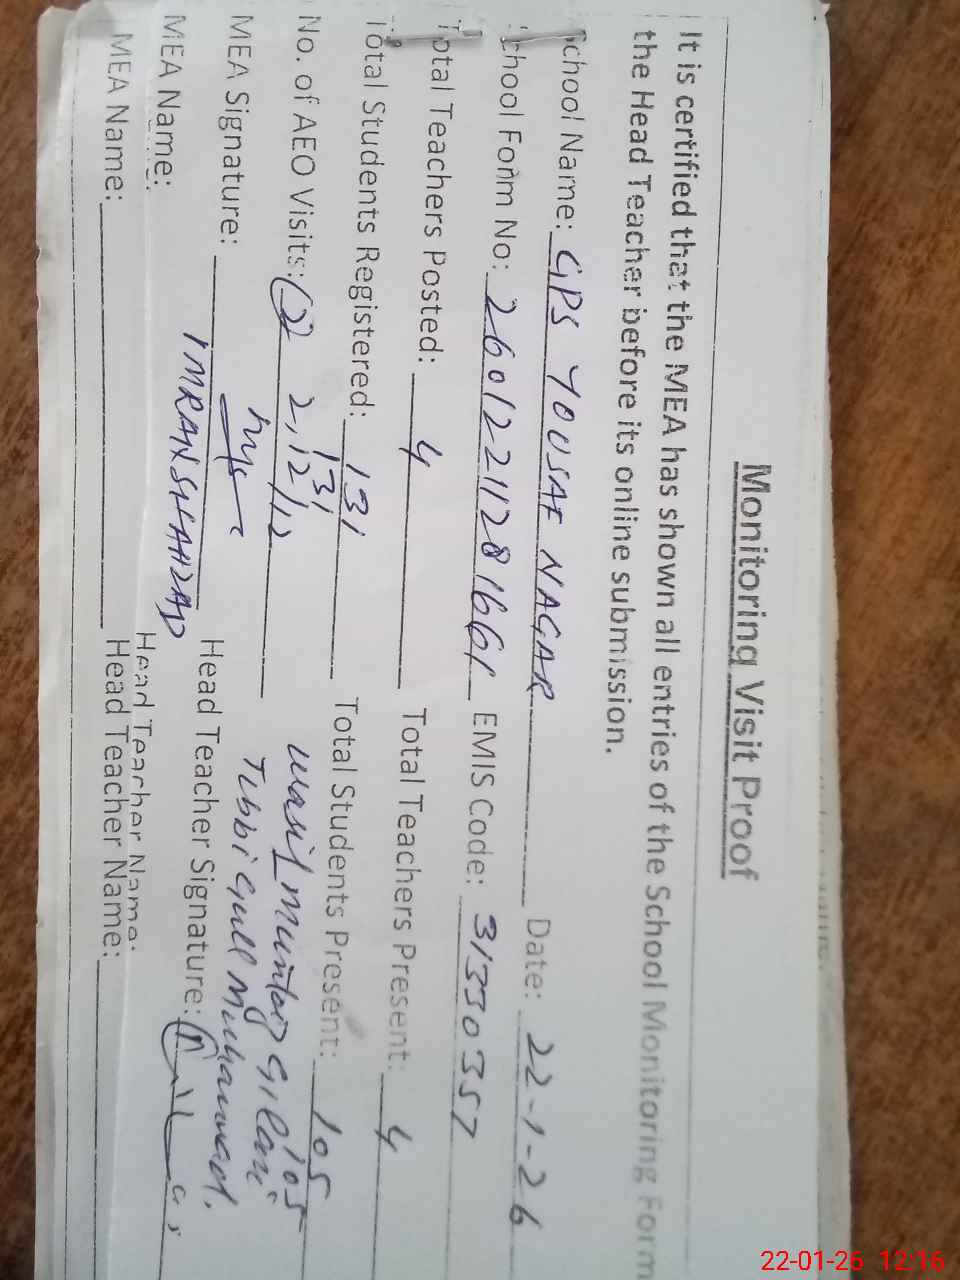 Monitoring Visit Proof
It is certified that the MEA has shown all entries of the School Monitoring Form
the Head Teacher before its online submission.
School Name: GPS YOUSAF NAGAR Date: 22-1-26
School Form No: 26012211281661 EMIS Code: 31330357
Total Teachers Posted: 4 Total Teachers Present: 4
Total Students Registered: 131 Total Students Present: 105
131 105
No. of AEO Visits: 2 2,12/12 Wasif Mumtaz Gilani
Tibbi Gull Muhammad.
MEA Signature: Head Teacher Signature:
MEA Name: IMRAN SHAHZAD Head Teacher Name:
MEA Name: Head Teacher Name:
22-01-26 12:16